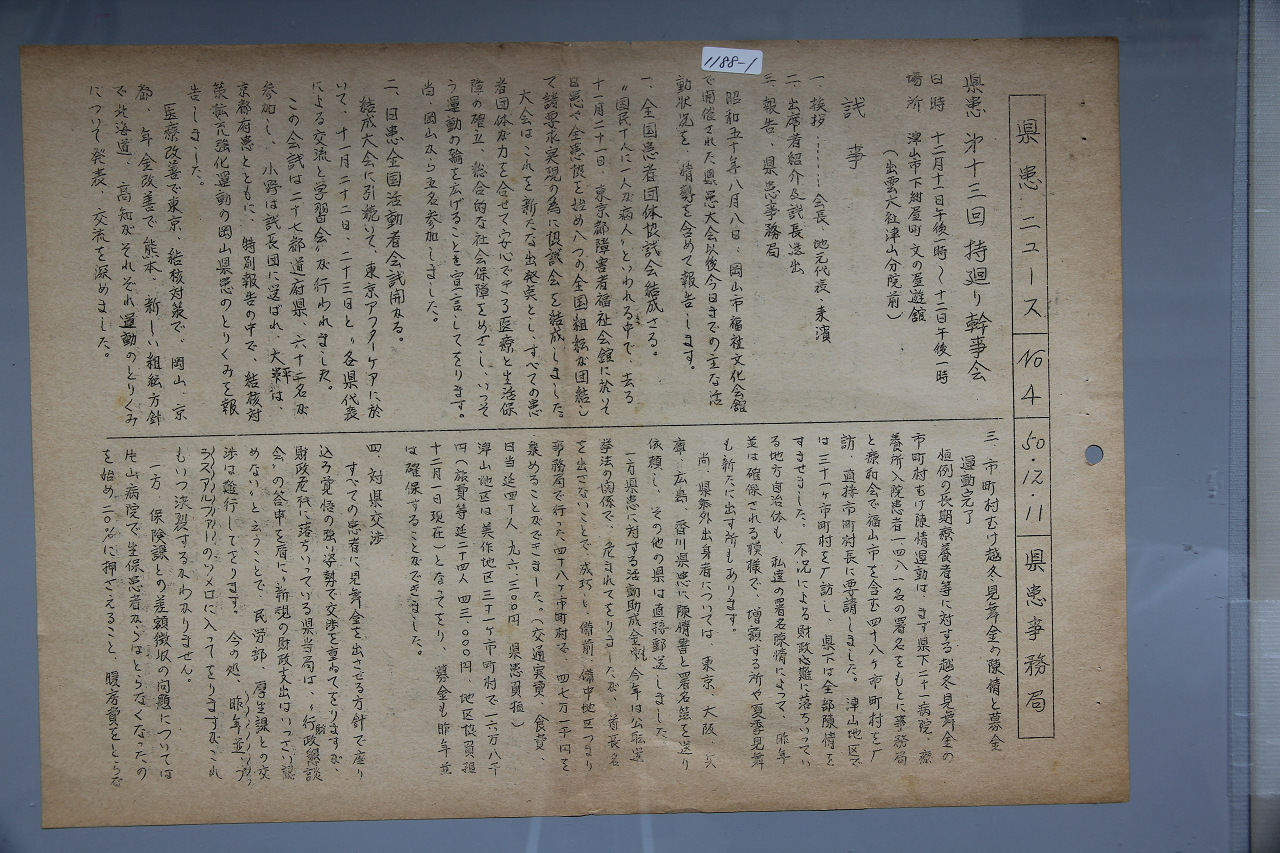 1188-1
県患ニュース No 4 50.12.11 県患事務局
県患 第十三回 持廻り幹事会
日時 十二月十一日午後一時〜十二日午後一時
場所 津山市下紺屋町 文の屋遊館
(出雲大社津山分院前)
議事
一、挨拶………会長、地元代表、来濱
二、出席者紹介及議長選出
三、報告、県患事務局
昭和五十年八月八日、岡山市福祉文化会館
で開催された県患大会以後今日までの主な活
動状況を、情勢を含めて報告します。
一、全国患者団体協議会結成さる。
"国民十人に一人が病人"といわれる中で、去る
十一月二十一日、東京都障害者福祉会館に於いて
日患や全患協を始め八つの全国組織が団結し
て諸要求実現の為に協議会を結成しました。
大会はこれを新たな出発点とし、すべての患
者団体が力を合せて安心できる医療と生活保
障の確立、総合的な社会保障をめざし、いっそ
う運動の輪を広げることを宣言してをります。
尚、岡山から五名参加しました。
二、日患全国活動者会議開かる。
結成大会に引続いて、東京アフターケアに於
いて、十一月二十二日、二十三日と、各県代表
による交流と学習会が行われました。
この会議は二十七都道府県、六十二名が
参加し、小野は議長団に選ばれ、大坪は、
京都府患とともに、特別報告の中で、結核対
策拡充強化運動の岡山県患のとりくみを報
告しました。
医療改善で東京、結核対策で、岡山、京
都、年金改善で熊本、新しい組織方針
で北海道、高知がそれぞれ運動のとりくみ
について発表、交流を深めました。
三、市町村むけ越冬見舞金の陳情と募金
運動完了
恒例の長期療養者等に対する越冬見舞金の
市町村むけ陳情運動は、まず県下二十一病院、療
養所入院患者一四八一名の署名をもとに事務局
と療和会で福山市を含む四十八ヶ市町村を訪
訪、直接市町村長に要請しました。津山地区で
は三十一ヶ市町村を訪問し、県下は全部陳情を
すませました。不況による財政困難に落ちいってい
る地方自治体も、私達の署名陳情によって、昨年
並は確保される模様で、増額する所や夏季見舞
も新たに出す所もあります。
尚、県外出身者については 東京、大阪、兵
庫、広島、香川県患に陳情書と署名簿を送り
依頼し、その他の県は直接郵送しました。
一方県患に対する活動助成金も、今年は公職選
挙法の関係で、危まれてをりましたが、首長名
を出さないことで、成巧し、備前、備中地区つまり
事務局で行った四十八ヶ市町村で、四七万一千円を
集めることができました。(交通実費、食費、
日当延四十人 九六、三〇〇円 県患負担)
津山地区は美作地区三十一ヶ市町村で一六万八千
円(旅費等延二十四人 四三、〇〇〇円、地区協負担
十二月一日現在)となってをり、募金も昨年並
は確保することができました。
四、対県交渉
すべての患者に見舞金を出させる方針で座り
込み覚悟の強い姿勢で交渉を重ねてをりますが、
財政危機に落ちいっている県当局は、"行財政懇談
会"の答申を盾に、新規の財政支出はいっさい認
めない、と云うことで、民労部、厚生課との交
渉は難行してをります。今の処、昨年並プ
ラスアルファーのツメロに入ってをりますがこれ
もいつ決裂するかわかりません。
一方 保険課との差額徴収の問題については
片山病院で生保患者からはとらなくなったの
を始め二〇%に押さえること、暖房費をとらな